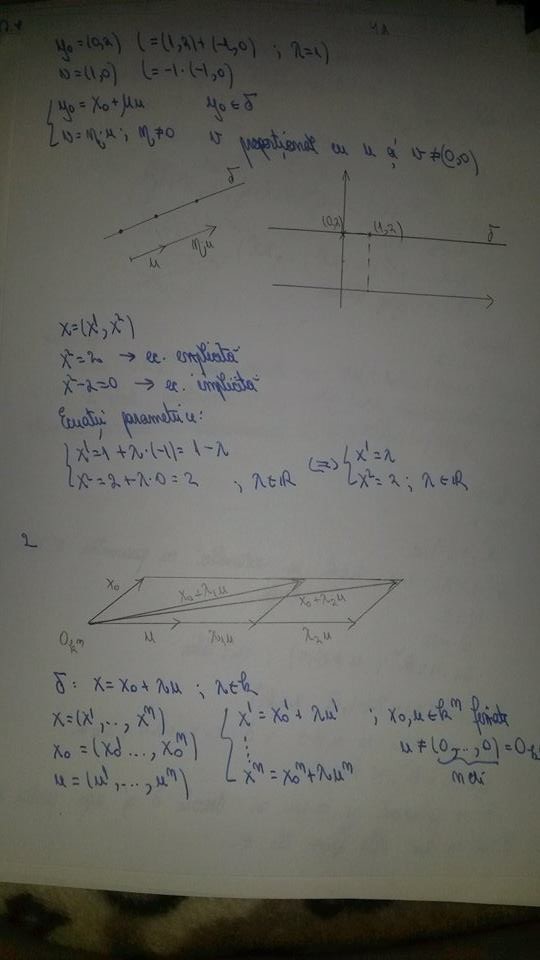 y₀=(0,2) (=(1,2)+(-1,0) ; λ=1)
v=(1,0) (=-1·(-1,0)
{ y₀=x₀+μu y₀∈δ
v=η·u ; η≠0 v proporțional cu u și v≠(0,0)
δ
u η·u
(0,2) (1,2) δ
x=(x¹, x²)
x²=2 → ec. explicită
x²-2=0 → ec. implicită
Ecuații parametrice:
{ x¹=1+λ·(-1)=1-λ (⇔) { x¹=λ
x²=2+λ·0=2 ; λ∈ℝ x²=2 ; λ∈ℝ
2
x₀ x₀+λ₁u x₀+λ₂u
u λ₁u λ₂u
δ: x=x₀+λu ; λ∈k
x=(x¹,..,xⁿ) { x¹=x₀¹+λu¹ ; x₀,u∈kⁿ fixate
x₀=(x₀¹...,x₀ⁿ) ⋮ u≠(0,..,0)=0
u=(u¹,...,uⁿ) xⁿ=x₀ⁿ+λuⁿ n ori